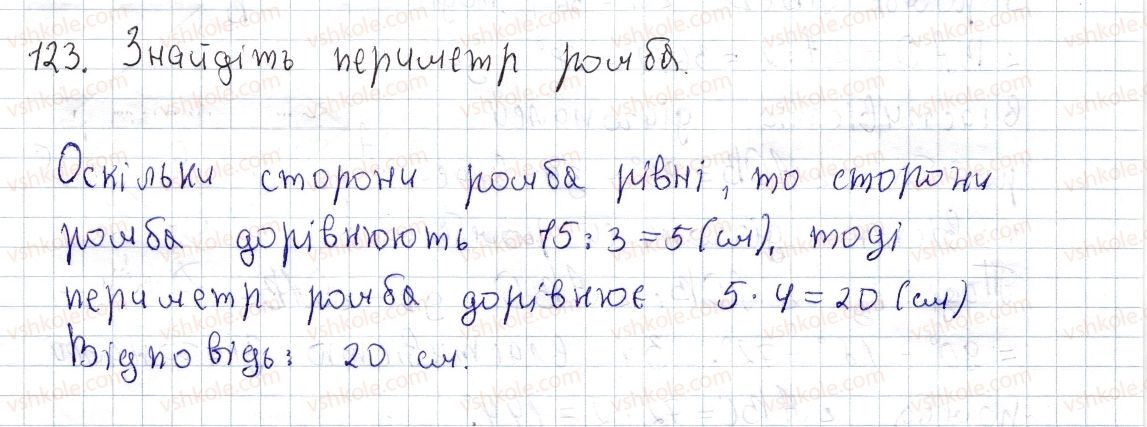 123. Знайдіть периметр ромба.
Оскільки сторони ромба рівні, то сторони
ромба дорівнюють 15 : 3 = 5 (см), тоді
периметр ромба дорівнює 5 · 4 = 20 (см)
Відповідь: 20 см.